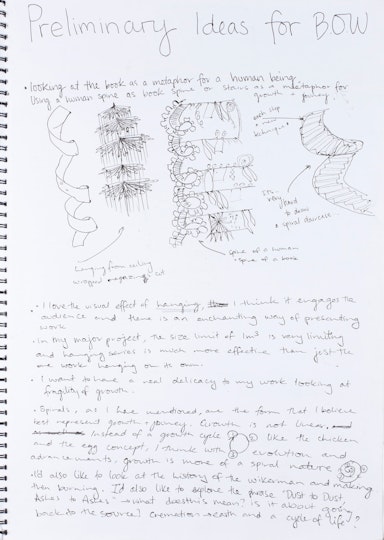 Preliminary Ideas for BOW
• looking at the book as a metaphor for a human being.
Using a human spine as book spine or stairs as a metaphor for
growth & journey.
each step
a new
its very
hard to draw
a spiral staircase..
hanging from ceiling
wrapped paper cut
spine of a human
= spine of a book
• I love the visual effect of hanging, I think it engages the
audience and there is an enchanting way of presenting
work
• in my major project, the size limit of 1m³ is very limiting
and hanging series is much more effective than just the
work hanging on its own.
• I want to have a real delicacy to my work looking at
fragility of growth.
• Spirals, as I have mentioned, are the form that I believe
best represent growth + journey. Growth is not linear,
Instead of a growth cycle like the chicken
and the egg concept, I think with evolution and
advancements, growth is more of a spiral nature
• I'd also like to look at the history of the wikerman and making
then burning. I'd also like to explore the phrase "Dust to Dust,
Ashes to Ashes" → what does this mean? is it about going
back to the source? cremation → earth and a cycle of life?